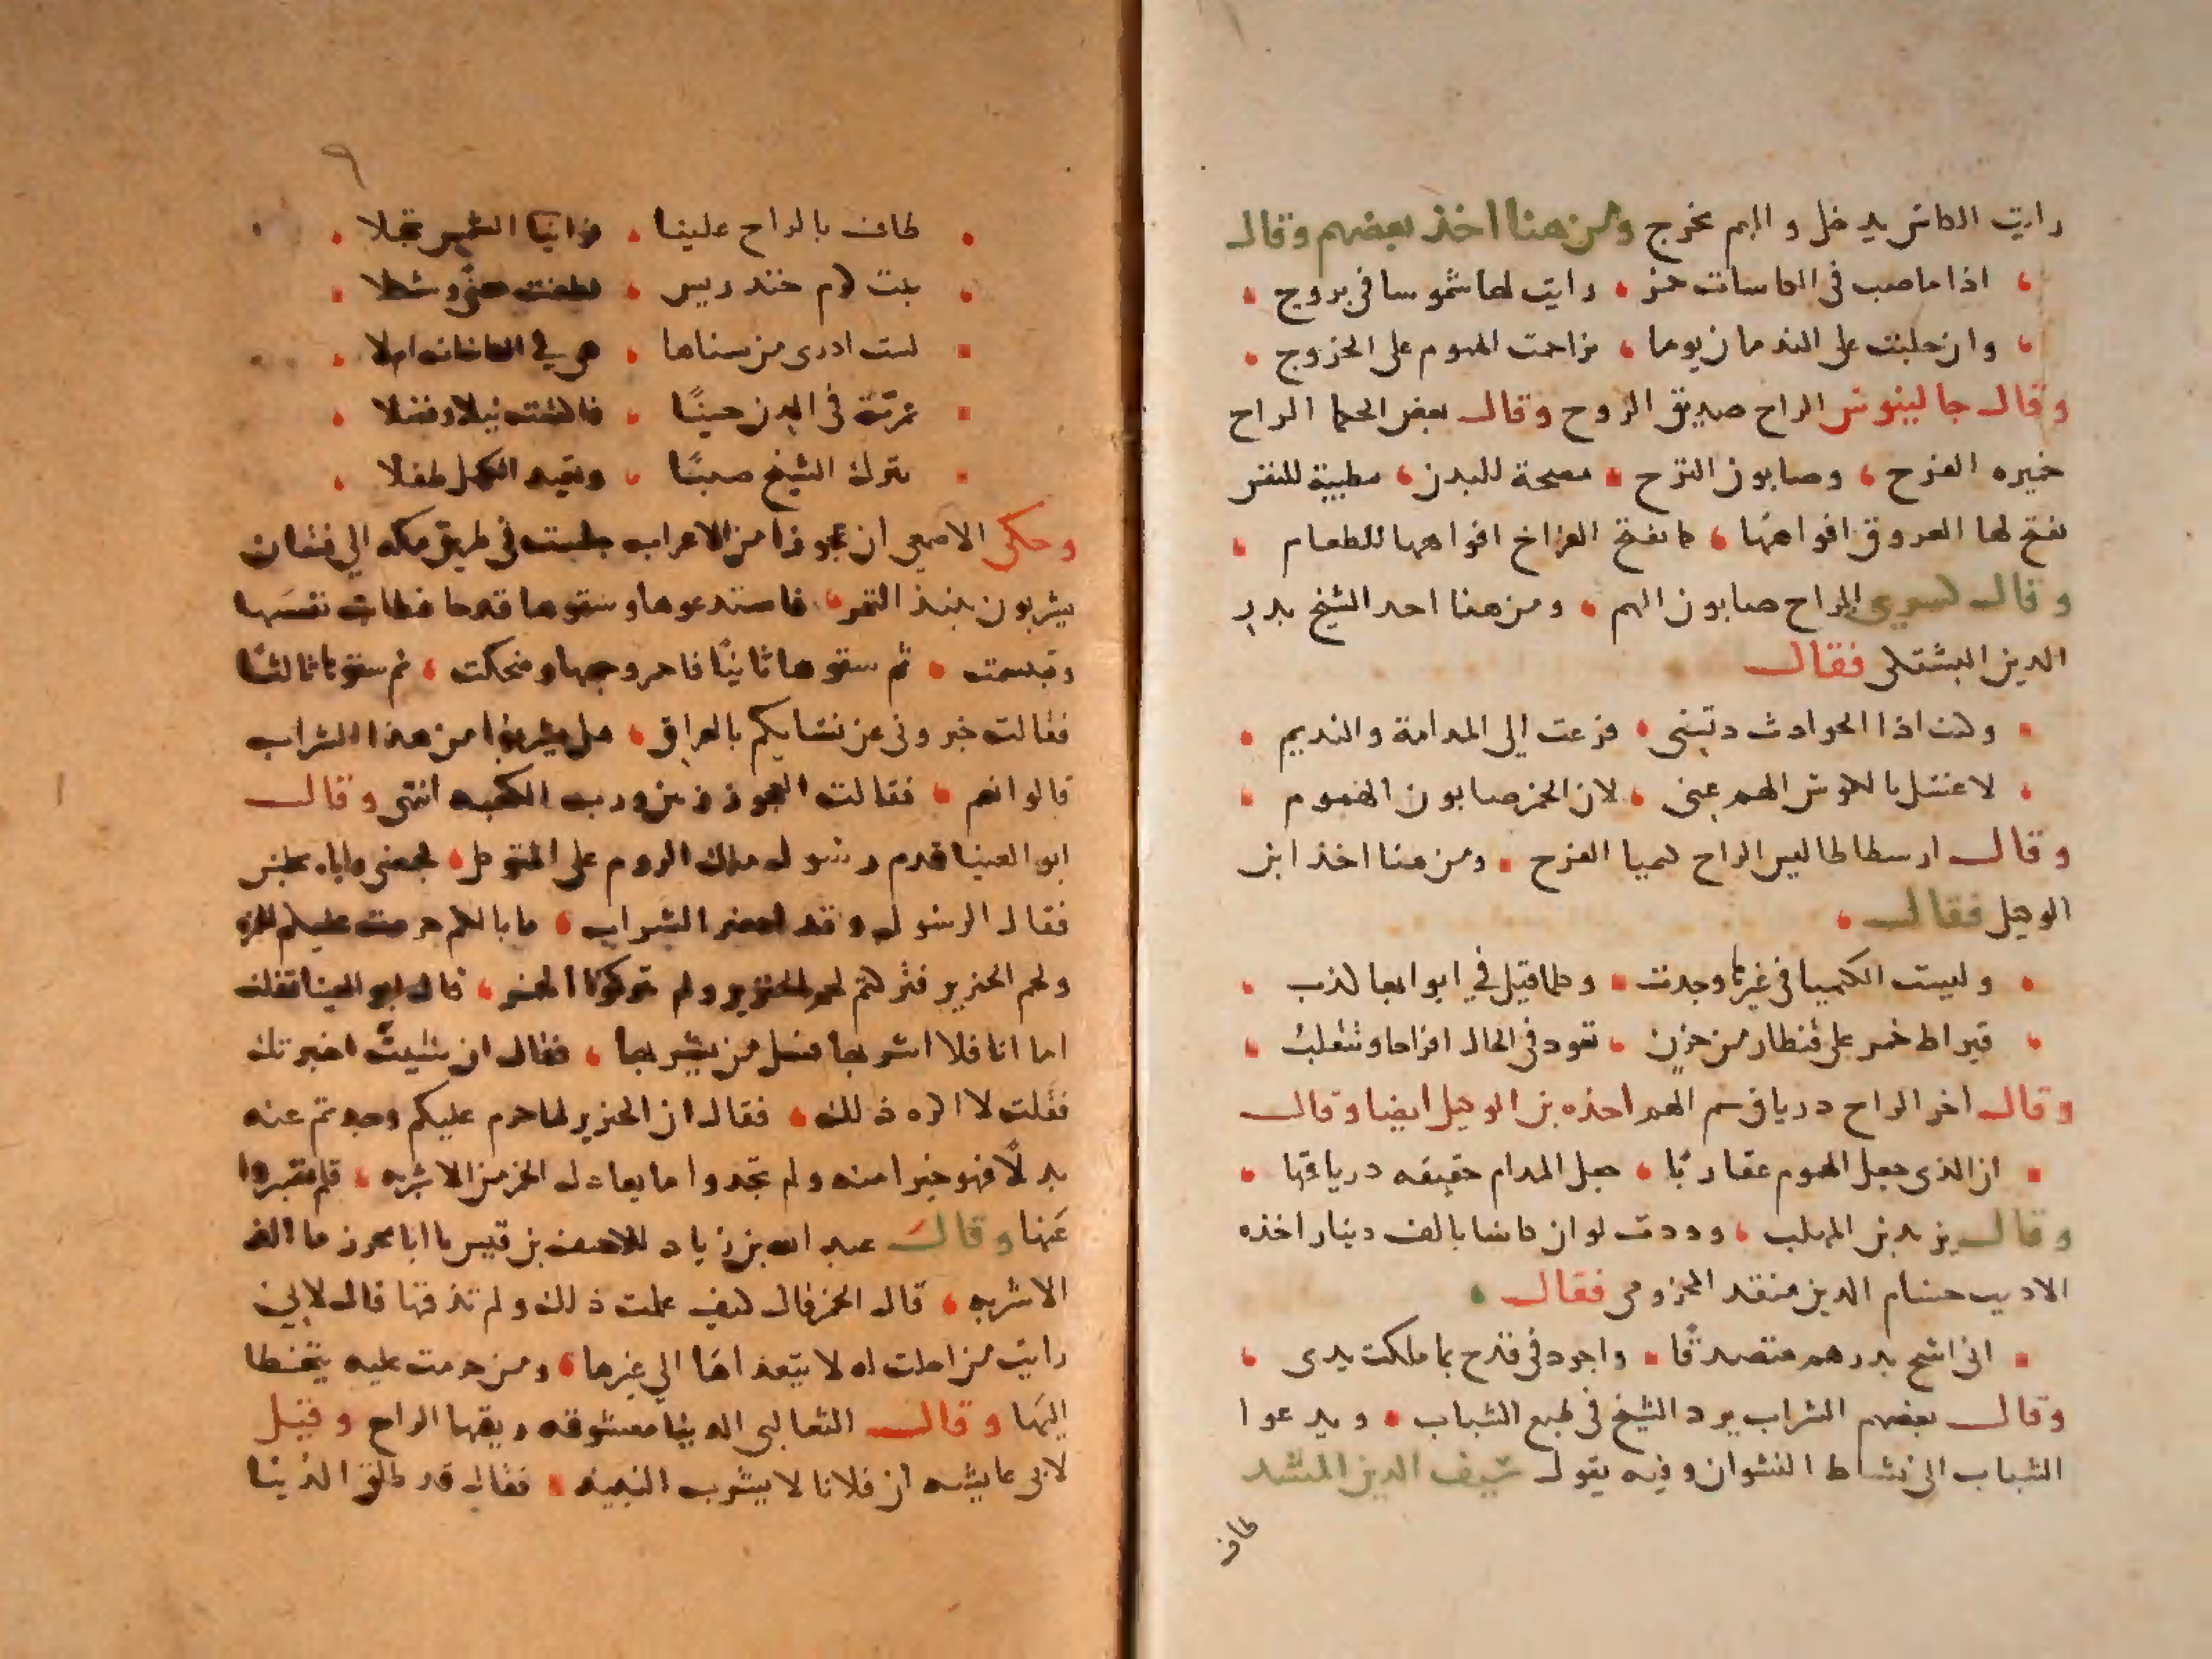 رايت الكاس يدخل والهم يخرج ومن هنا اخذ بعضهم وقال
اذا ما صب في الكاسات خمر رايت لها شموسا في بروج
وان جلبت على الندمان يوما تزاحمت الهموم على الخروج
وقال جالينوس الراح صديق الروح وقال بعض الحكما الراح
خميره الفرح وصابون الترح مصحة للبدن مطيبة للنفس
تفتح لها العروق افواهها كما تفتح الفراخ افواهها للطعام
وقال كسرى الراح صابون الهم ومن هنا اخد الشيخ بدر
الدين البشتكي فقال
وكنت اذا الحوادث دنستنى فزعت الى المدامة والنديم
لاغسل بالكوس الهم عنى لان الخمر صابون الهموم
وقال ارسطاطاليس الراح كميا الفرح ومن هنا اخذ ابن
الوكيل فقال
وليست الكميا في غيرها وجدت وكلما قيل في ابوابها كذب
قيراط خمر على قنطار من حزن تعود في الحال افراحا وتنقلب
وقال اخر الراح درياق سم الهم اخذه بن الوكيل ايضا وقال
ان الذى جعل الهموم عقاربا جعل المدام حقيقه درياقها
وقال يزيد بن المهلب وددت لو ان كاسا بالف دينار اخذه
الاديب حسام الدين منقد المخزومى فقال
انى اشح بدرهم متصدقًا واجود في قدح بما ملكت يدى
وقال بعضهم الشراب يرد الشيخ في طبع الشباب ويدعوا
الشباب الى نشاط النشوان وفيه يقول سيف الدين المشد
طاف
٩
طاف بالراح علينا فراينا الشمس تجلا
بنت كرم خندريس
لست ادرى من سناها هي في الكاسات ام لا
في الدن حينًا فاكتست نبلا وفضلا
تترك الشيخ صبيًا وتعيد الكهل طفلا
وحكى الاصمعي ان عجوزا من الاعراب جلست في طريق مكه الي فتيان
يشربون نبيذ التمر فاستدعوها وسقوها قدحا فطابت نفسها
وتبسمت ثم سقوها ثانيًا فاحمر وجهها وضحكت ثم سقوها ثالثًا
فقالت خبرونى عن نسايكم بالعراق هل يشربوا من هذا الشراب
قالوا نعم فقالت العجوز زنين ورب الكعبه انتهى وقال
ابو العينا قدم رسول ملك الروم على المتوكل فجمعنى واياه مجلس
فقال الرسول وقد احضر الشراب ما بالكم حرمت عليكم الخمر
ولحم الخنزير فتركتم لحم الخنزير ولم تتركوا الخمر قال ابو العينا فقلت
اما انا فلا اشربها فسل من يشربها فقال ان شيتَ اخبرتك
فقلت لا اكره ذلك فقال ان الخنزير لما حرم عليكم وجدتم عنه
بدلًا فهو خيرا منه ولم تجدوا ما يعادل الخمر من الاشربه فلم تصبروا
عنها وقال عبد الله بن زياد للاحنف بن قيس يا ابا بحر ما الذ
الاشربه قال الخمر فقال كيف علمت ذلك ولم تذقها قال لاني
رايت من احلت له لا يتعداها الي غيرها ومن حرمت عليه يتخطا
اليها وقال الثعالبى الدنيا معشوقه ريقها الراح وقيل
لابى عايشه ان فلانا لا يشرب النبيذ فقال قد طلق الدنيا